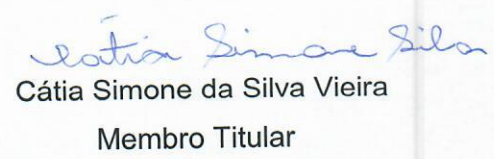 Cátia Simone Silva
Cátia Simone da Silva Vieira
Membro Titular